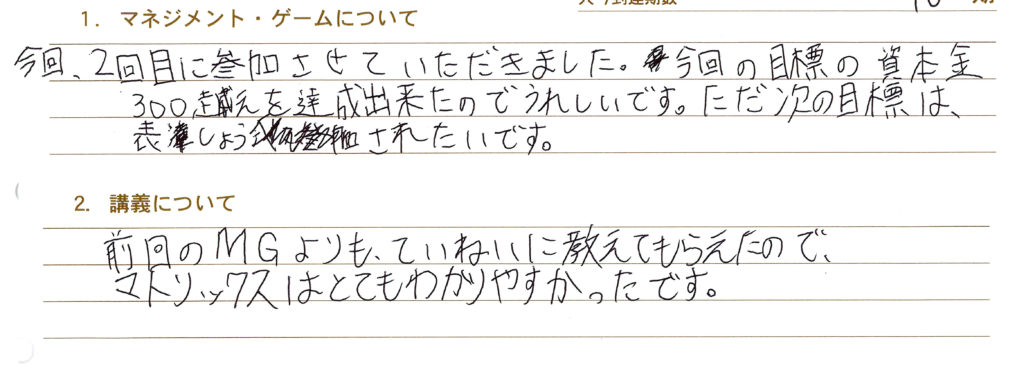 1. マネジメント・ゲームについて
今回、2回目に参加させていただきました。今回の目標の資本金
300越えを達成出来たのでうれしいです。ただ次の目標は、
表しょうされたいです。
2. 講義について
前回のMGよりも、ていねいに教えてもらえたので、
マトリックスはとてもわかりやすかったです。